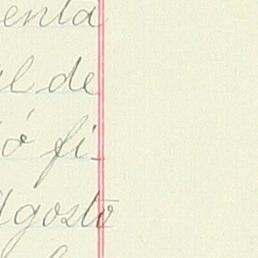 enta
l de
ó fi-
Agosto